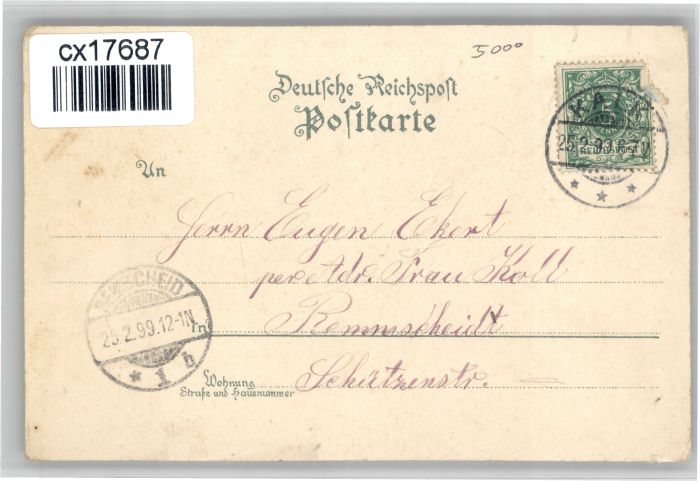 cx17687
5000
Deutsche Reichspost
Postkarte
KALK
25.2.99.
REICHSPOST
An
Herrn Eugen Ekert
per Adr. Frau Koll
in Remmscheidt
Schützenstr.
Wohnung
Straße und Hausnummer
REMSCHEID
25.2.99.12-1N
* 1 h